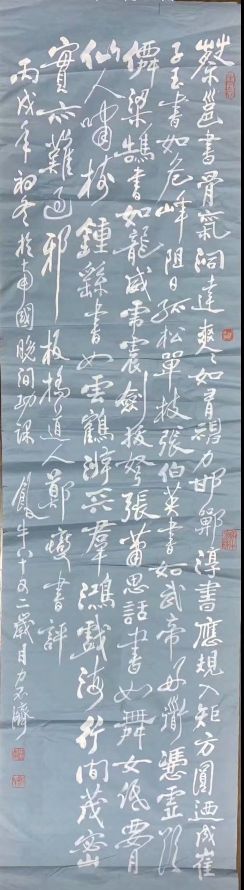 蔡邕書骨氣洞達爽爽如有神力邯鄲淳書應規入矩方圓迺成崔
子玉書如危峰阻日孤松單枝張伯英書如武帝好道憑虛欲
僊梁鵠書如龍威虎震劍拔弩張蕭思話書如舞女低腰
仙人嘯樹鍾繇書如雲鶴游天群鴻戲海行間茂密
實亦難過邪 板橋道人鄭燮書評
丙戌年初冬於南國晚間功課 八十又二歲目力不濟